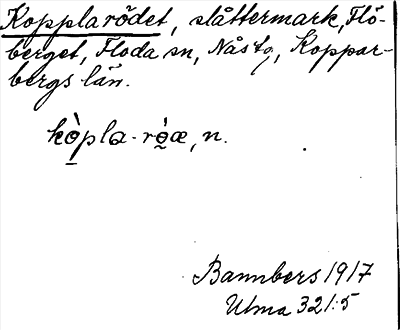 Kopplarödet, slåttermark, Flö-
berget, Floda sn, Nås tg, Koppar-
bergs län.
kò̱pla-rö̱̀æ, n.
Bannbers 1917
Ulma 321:5